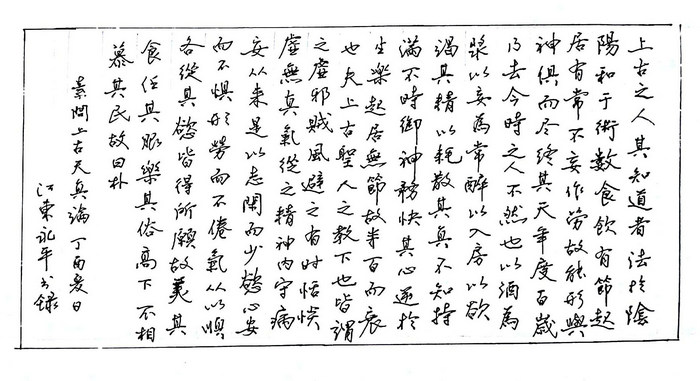 上古之人其知道者法於陰
陽和于術數食飲有節起
居有常不妄作勞故能形與
神俱而尽终其天年度百歲
乃去今時之人不然也以酒為
漿以妄為常醉以入房以欲
竭其精以耗散其真不知持
滿不時御神務快其心逆於
生樂起居無節故半百而衰
也夫上古聖人之教下也皆謂
之虛邪賊風避之有时恬惔
虛無真氣從之精神内守病
安从来是以志閑而少慾心安
而不惧形勞而不倦氣从以順
各從其慾皆得所願故美其
食任其服樂其俗高下不相
慕其民故曰朴
素問上古天真論 丁酉夏日
河東永平书録